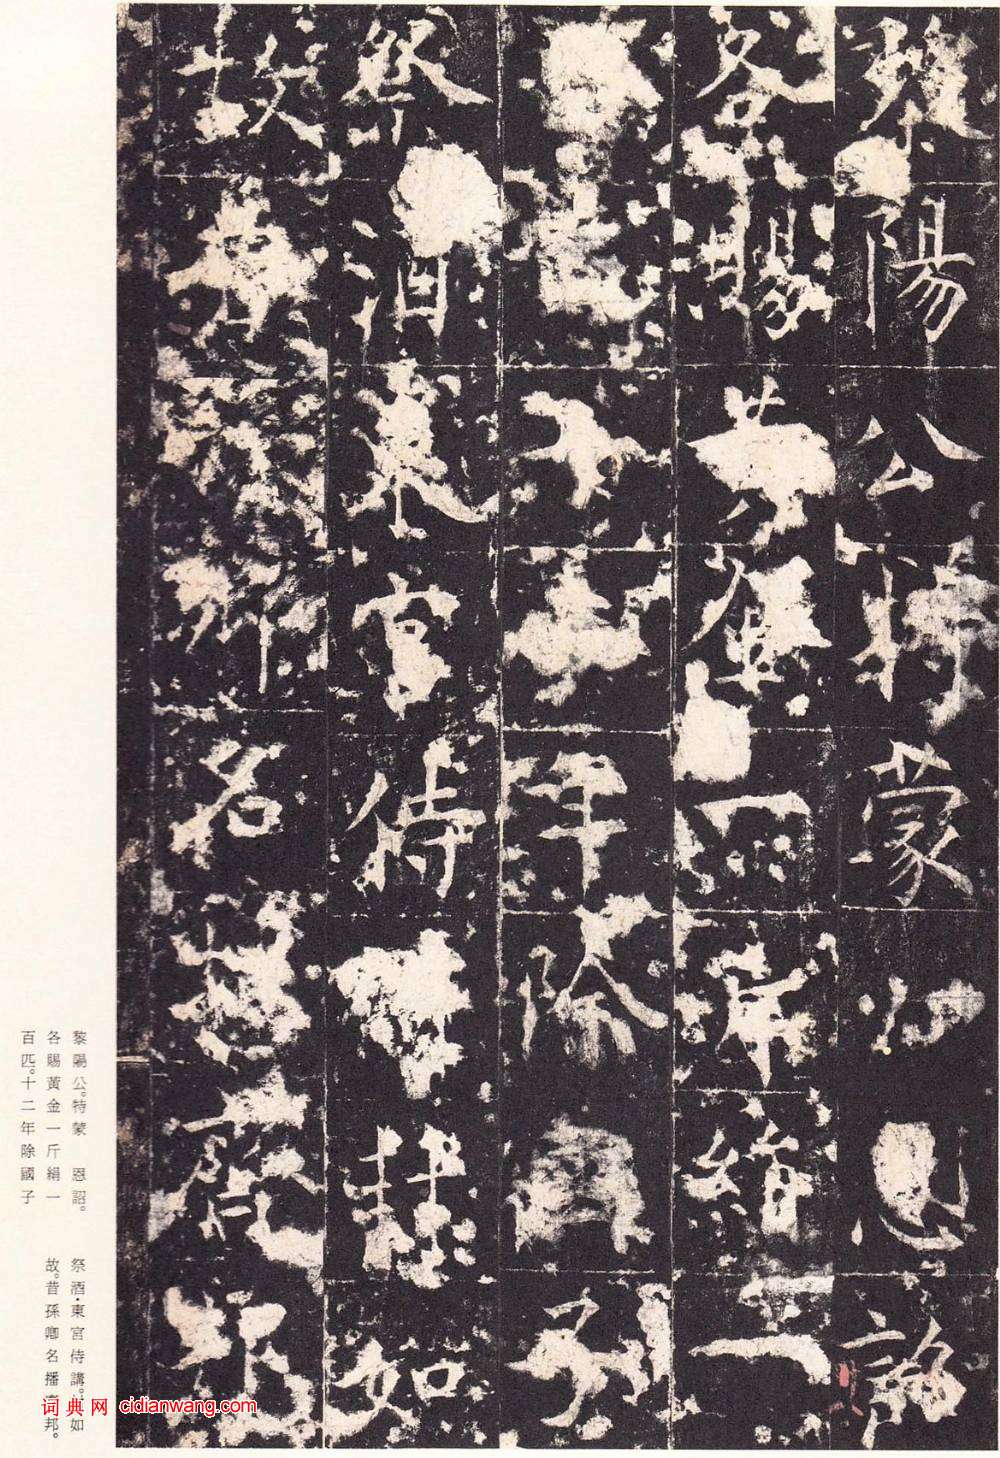 黎陽公特蒙 恩詔
各賜黃金一斤絹一
百匹十二年除國子
祭酒東宮侍講 如
故昔孫卿名播 邦
黎陽公。特蒙 恩詔。
各賜黃金一斤絹一
百匹。十二年除國子
祭酒·東宮侍講。 如
故。昔孫卿名播 邦。
词典网 cidianwang.com